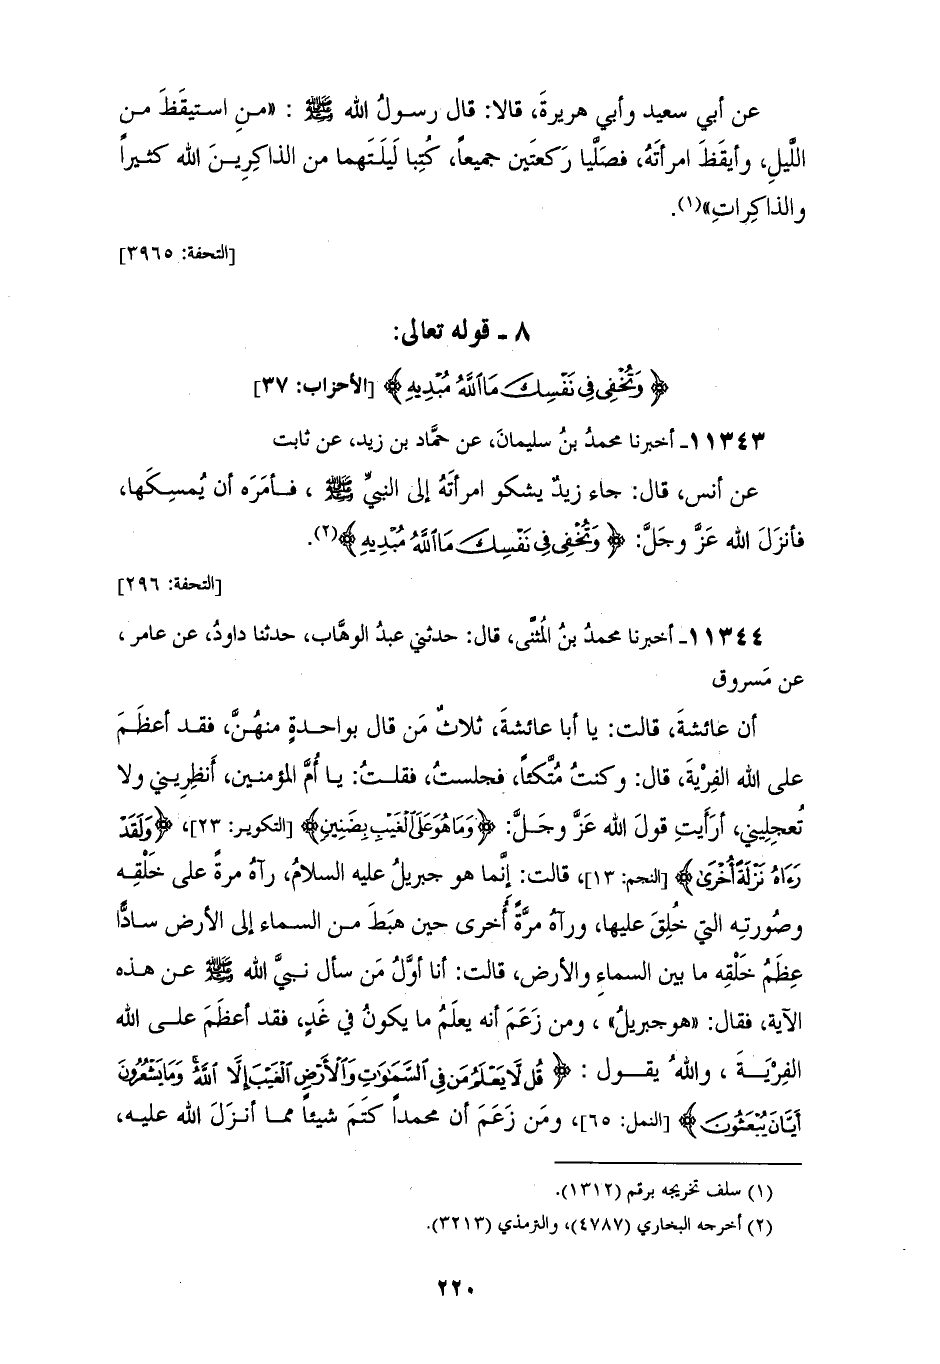 عن أبي سعيد وأبي هريرةَ، قالا: قال رسولُ الله ﷺ : «منِ استيقَظَ من
اللَّيلِ، وأيقَظَ امرأتَهُ، فصَلَّيا رَكعتَين جميعاً، كُتِبا لَيلَتَهما من الذاكِرِينَ الله كثيراً
والذاكِراتِ»(١).
[التحفة: ٣٩٦٥]
٨ ـ قوله تعالى:
﴿وَتُخْفِي فِي نَفْسِكَ مَا اللَّهُ مُبْدِيهِ﴾ [الأحزاب: ٣٧]
١١٣٤٣ـ أخبرنا محمدُ بنُ سليمانَ، عن حمَّاد بن زيد، عن ثابت
عن أنس، قال: جاء زيدٌ يشكو امرأتَهُ إلى النبيِّ ﷺ ، فأمَرَه أن يُمسِكَها،
فأنزَلَ الله عَزَّ وجَلَّ: ﴿وَتُخْفِي فِي نَفْسِكَ مَا اللَّهُ مُبْدِيهِ﴾(٢).
[التحفة: ٢٩٦]
١١٣٤٤ـ أخبرنا محمدُ بنُ المُثنَّى، قال: حدثني عبدُ الوهَّاب، حدثنا داودُ، عن عامر ،
عن مَسروق
أن عائشةَ، قالت: يا أبا عائشةَ، ثلاثٌ مَن قال بواحدةٍ منهُنَّ، فقد أعظَمَ
على الله الفِرْيةَ، قال: وكنتُ مُتَّكئاً، فجلستُ، فقلتُ: يا أُمَّ المؤمنين، أَنظِرِيني ولا
تُعجلِيني، أرأَيتِ قولَ الله عَزَّ وجَلَّ: ﴿وَمَا هُوَ عَلَى الْغَيْبِ بِضَنِينٍ﴾ [التكوير: ٢٣]، ﴿وَلَقَدْ
رَءَاهُ نَزْلَةً أُخْرَىٰ﴾ [النجم: ١٣]، قالت: إنَّما هو جبريلُ عليه السلامُ، رآهُ مرةً على خَلْقِه
وصُورتِه التي خُلِقَ عليها، ورآهُ مرَّةً أُخرى حين هبَطَ من السماء إلى الأرض سادًّا
عِظَمُ خَلْقِه ما بين السماءِ والأرض، قالت: أنا أوَّلُ مَن سأل نبيَّ الله ﷺ عن هذه
الآية، فقال: «هو جبريلُ» ، ومن زعَمَ أنه يعلَمُ ما يكونُ في غَدٍ، فقد أعظَمَ على الله
الفِرْيَةَ ، واللهُ يقول : ﴿قُل لَّا يَعْلَمُ مَن فِي السَّمَٰوَٰتِ وَالْأَرْضِ الْغَيْبَ إِلَّا اللَّهُ وَمَا يَشْعُرُونَ
أَيَّانَ يُبْعَثُونَ﴾ [النمل: ٦٥]، ومَن زعَمَ أن محمداً كتَمَ شيئاً مما أنزَلَ الله عليه،
(١) سلف تخريجه برقم (١٣١٢).
(٢) أخرجه البخاري (٤٧٨٧)، والترمذي (٣٢١٣).
٢٢٠